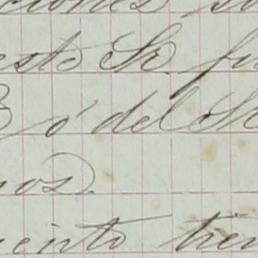 ciones
este Sr. fu
ó del Se
nos.
iento tien